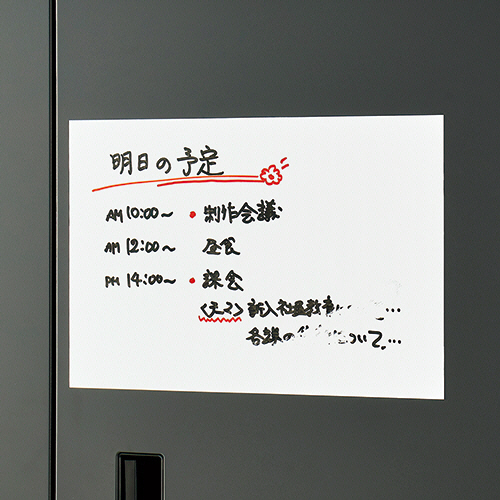 明日の予定
AM 10:00〜 • 制作会議
AM 12:00〜 昼食
PM 14:00〜 • 課会
<テーマ> 新入社員教育 ...
各課の ついて...